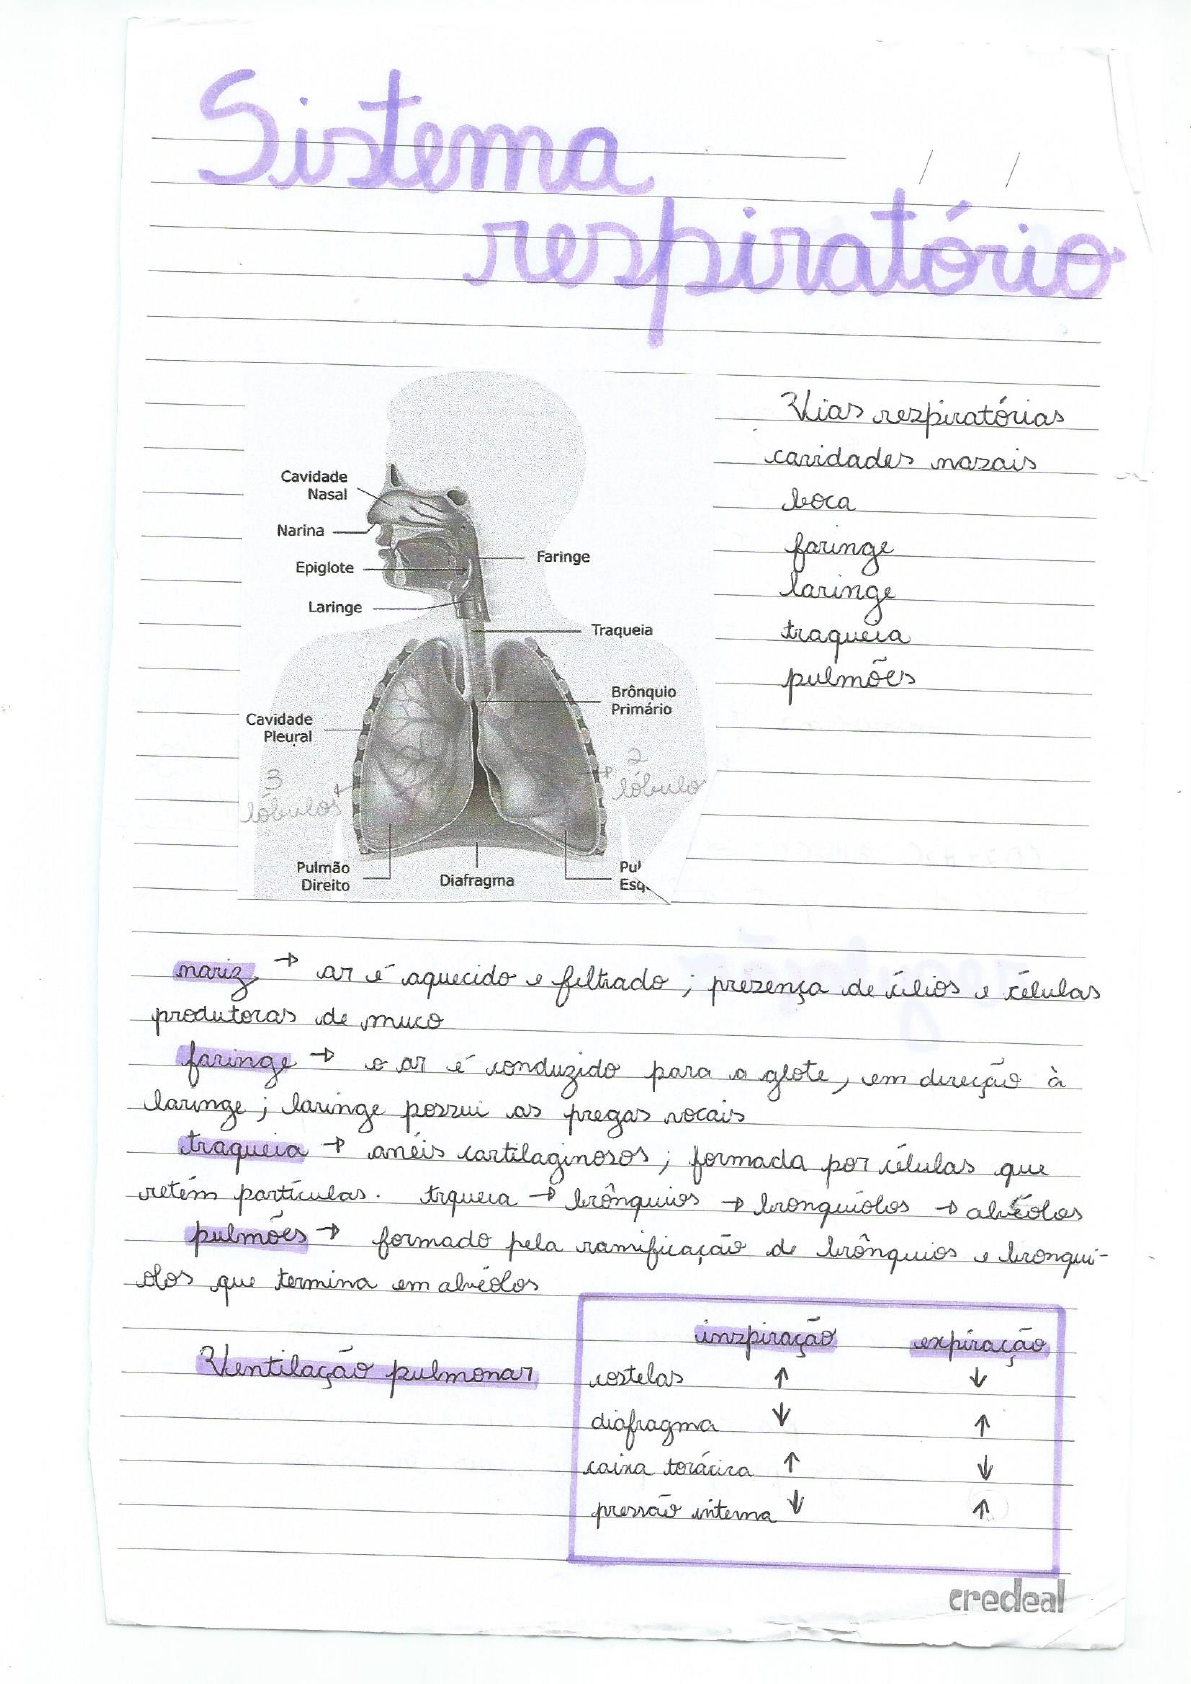 Sistema
respiratório
/ /
Vias respiratórias
cavidades nasais
boca
faringe
laringe
traqueia
pulmões
Cavidade
Nasal
Narina
Epiglote
Faringe
Laringe
Traqueia
Brônquio
Primário
Cavidade
Pleural
3
lóbulos
2
lóbulo
Pulmão
Direito
Diafragma
Pul
Esq
nariz → ar é aquecido e filtrado; presença de cílios e células
produtoras de muco
faringe → o ar é conduzido para a glote, em direção à
laringe; laringe possui as pregas vocais
traqueia → anéis cartilaginosos; formada por células que
retém partículas. trqueia → brônquios → bronquíolos → alvéolos
pulmões → formado pela ramificação de brônquios e bronquí-
olos que termina em alvéolos
Ventilação pulmonar
inspiração expiração
costelas ↑ ↓
diafragma ↓ ↑
caixa torácica ↑ ↓
pressão interna ↓ ↑
credeal